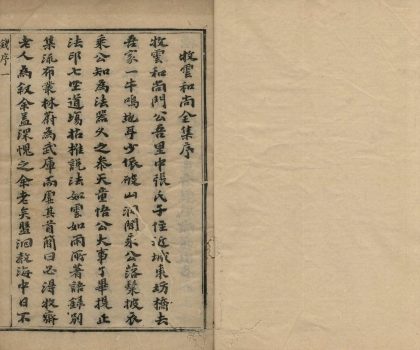 牧雲和尚全集序
牧雲和尚門公吾里中張氏子住近城東坊橋去
吾家一牛鳴地耳少依破山洞聞乘公落髮披衣
乘公知為法器久之參天童悟公大事了畢提正
法印七坐道場拈椎說法如雲如雨所著語錄別
集流布叢林蔚為武庫而屬其首簡曰必得牧齋
老人為敘余蓋深愧之余老矣盤洄教海中日不
錢序一